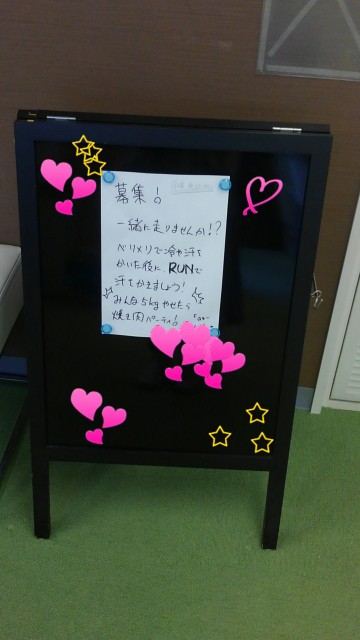 募集!
一緒に走りませんか!?
ベリメリで冷や汗を
かいた後に、RUNで
汗をかきましょう!
みんな5kgやせたら
焼き肉パーティ!